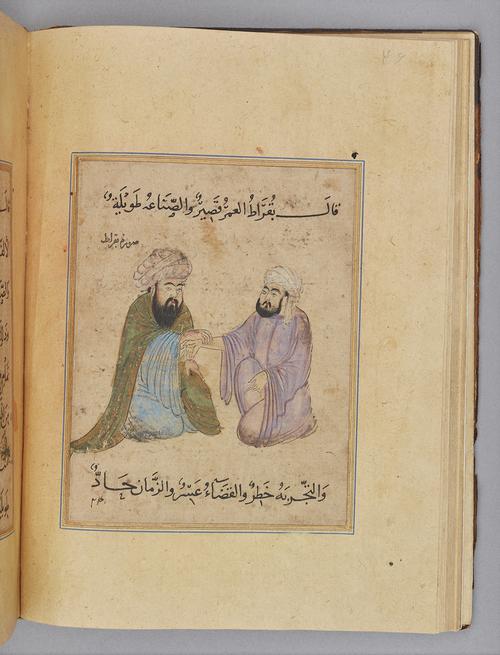 قالَ بُقراطُ العمرُ قَصيرٌ والصِّنَاعهُ طَويلَةٌ
صورة بقراط
وَالتجّربهُ خَطرٌ والقضَاءُ عَسِرٌ والزَّمان حَادٌّ